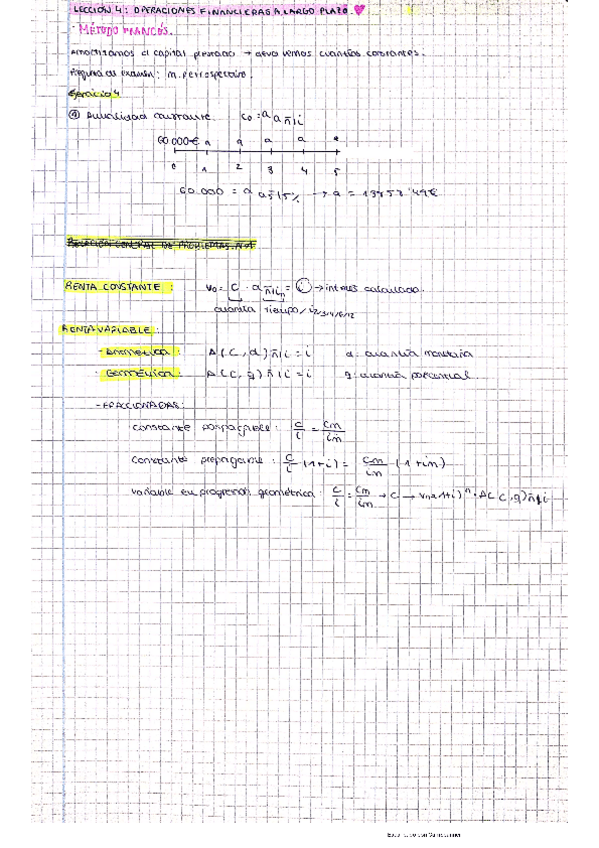 LECCIÓN 4: OPERACIONES FINANCIERAS A LARGO PLAZO
- MÉTODO FRANCÉS.
Amortizamos el capital prestado → devolvemos cuantías constantes.
Pregunta de examen: m. retrospectivo.
Ejercicio 4
ⓐ Anualidad constante. C0 = a a n̅| i
60.000€ a a a a a
0 1 2 3 4 5
60.000 = a a 5̅| 5% → a = 13858'49€
RELACIÓN GENERAL DE PROBLEMAS
RENTA CONSTANTE: V0 = C · a n̅| in = i → interés calculado.
cuantía tiempo/i2/3/4/6/12
RENTA VARIABLE:
- Aritmética: A(C, d) n̅| i = i d: cuantía monetaria
- Geométrica: A(C, q) n̅| i = i q: cuantía porcentual
- FRACCIONADAS:
constante pospagable: c/i = cm/im
constante prepagable: c/i · (1+i) = cm/im · (1+im)
variable en progresión geométrica: c/i = cm/im → C →